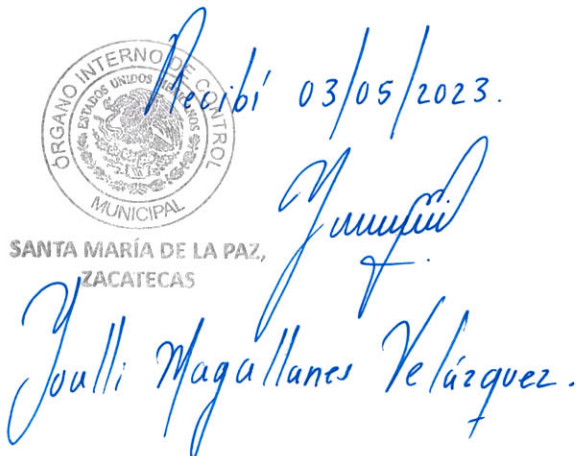 ÓRGANO INTERNO DE CONTROL
ESTADOS UNIDOS MEXICANOS
MUNICIPAL
SANTA MARÍA DE LA PAZ,
ZACATECAS
Recibí 03/05/2023.
Youlli Magallanes Velázquez.